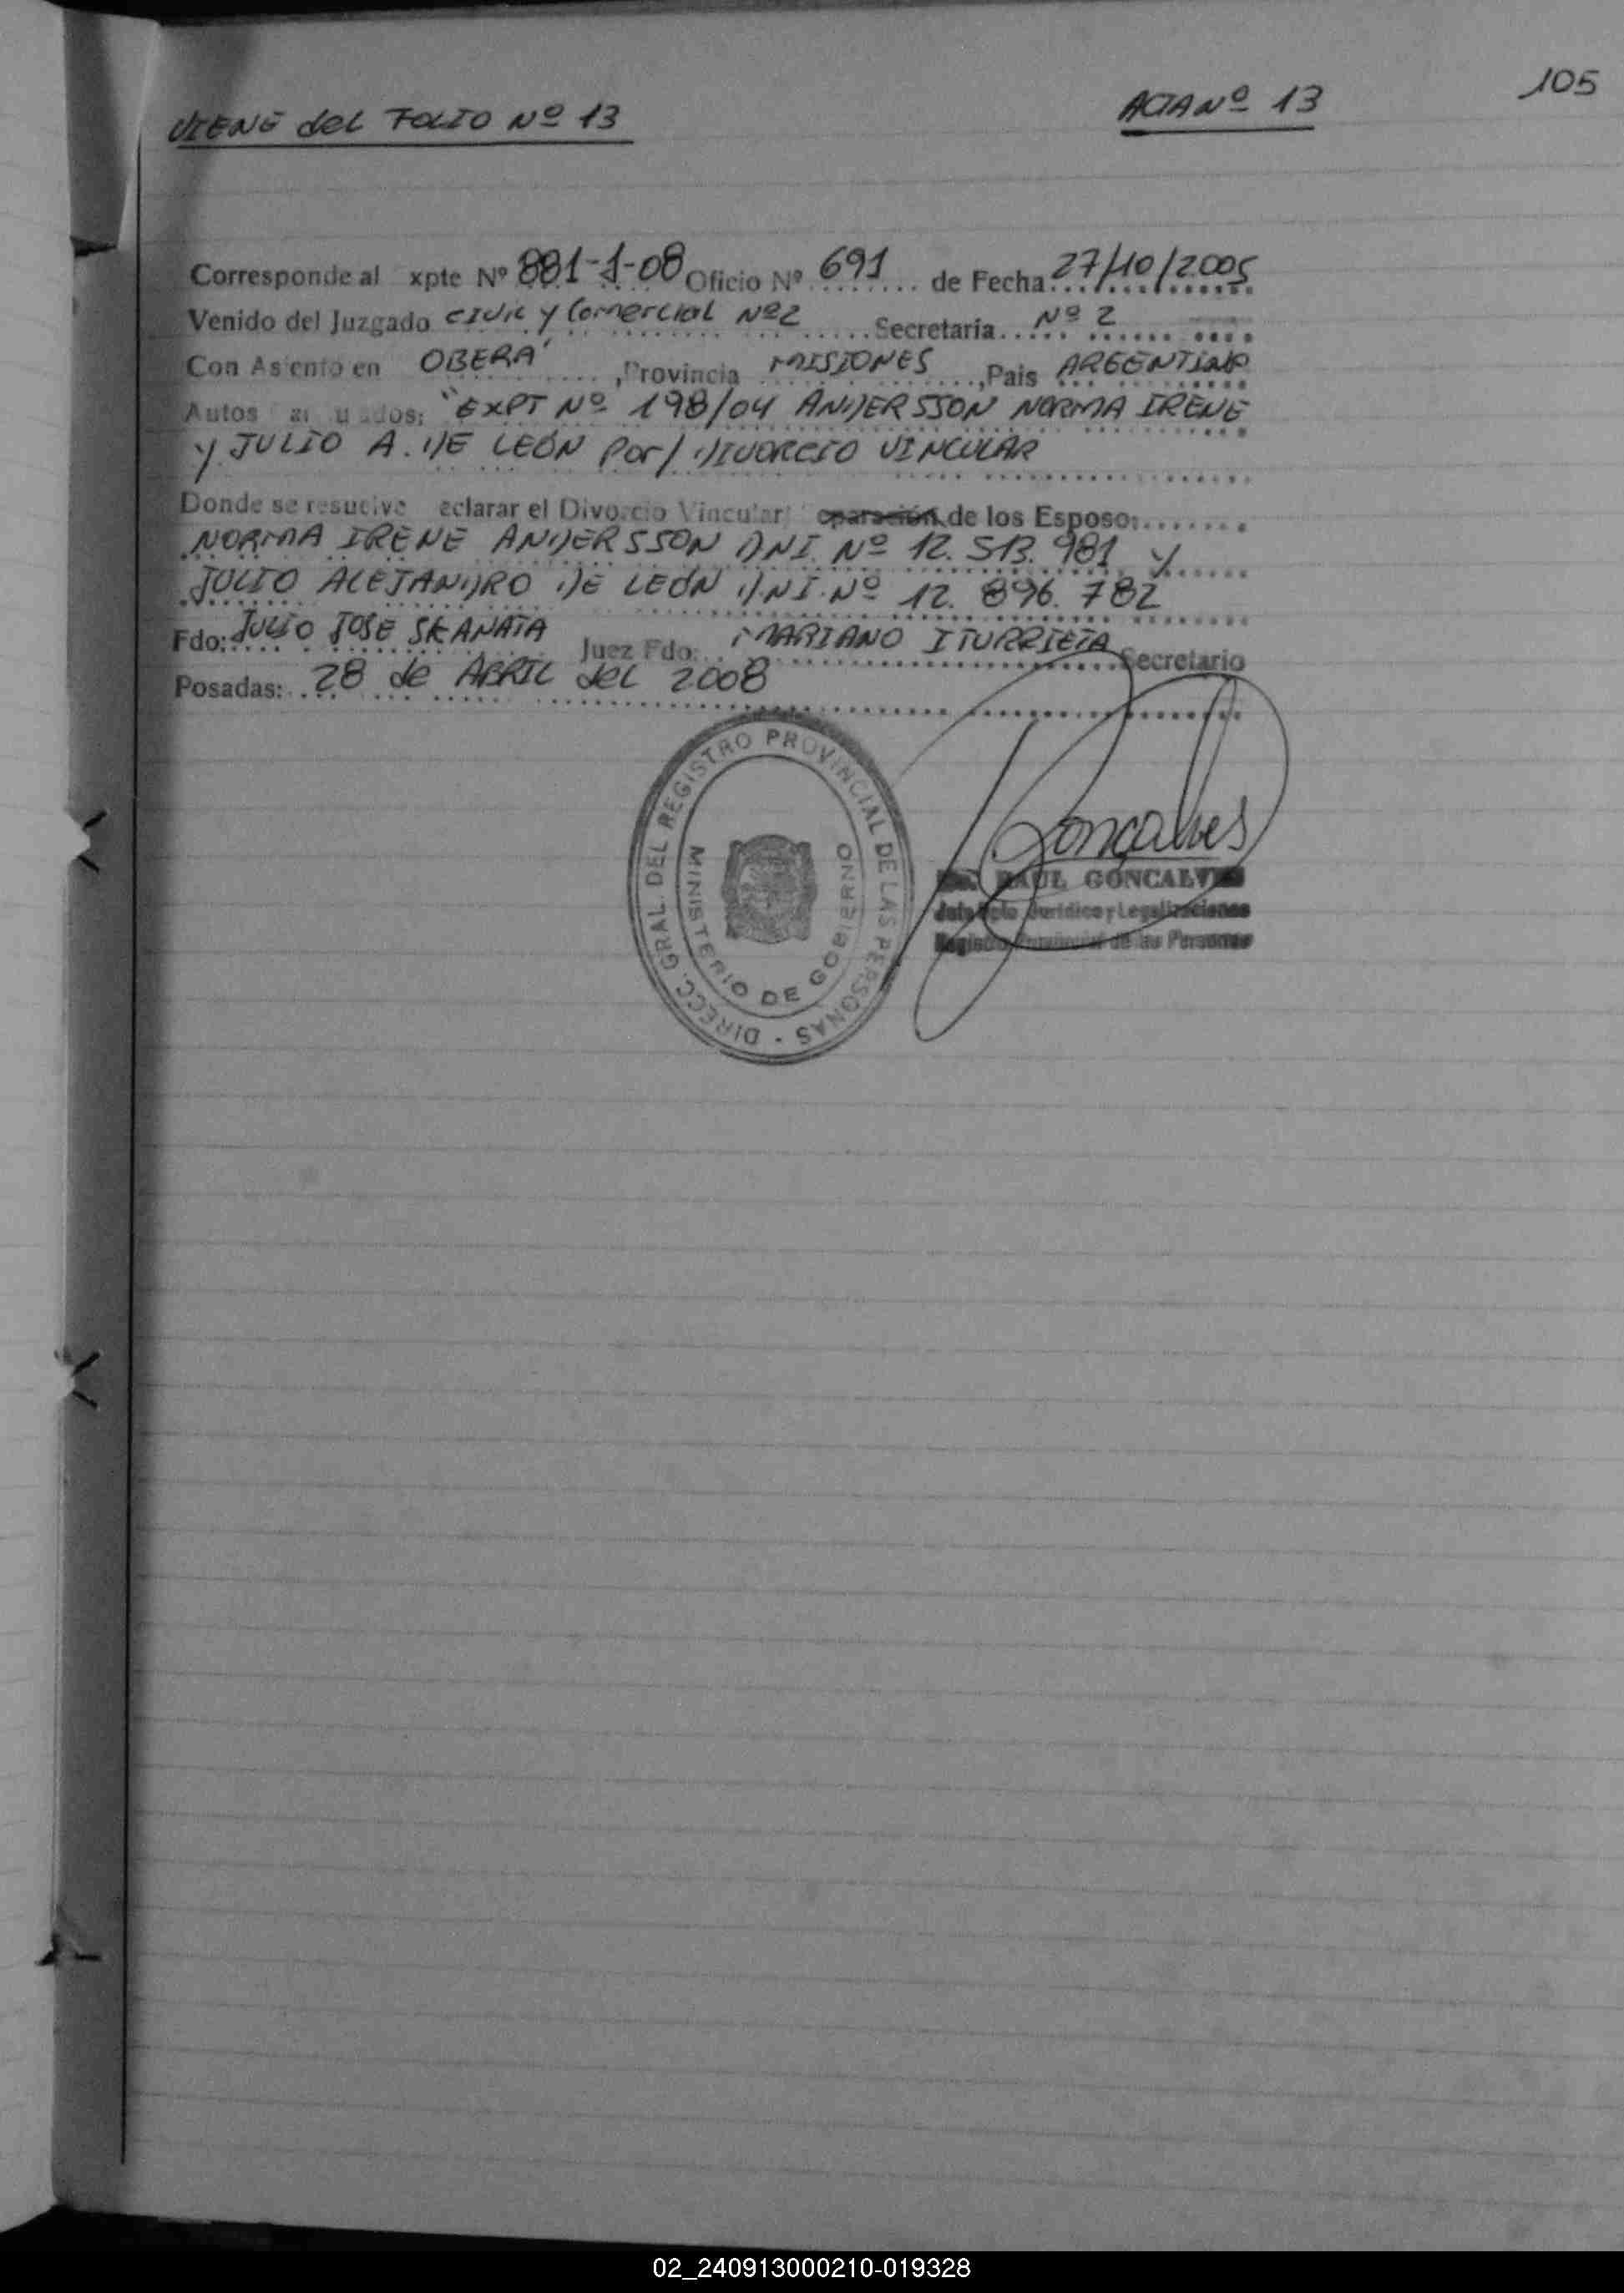 105
VIENE del FOLIO Nº 13
ACTA Nº 13
Corresponde al xpte Nº 881-1-08 Oficio Nº 691 de Fecha 27/10/2005
Venido del Juzgado CIVIL y Comercial Nº2 Secretaría Nº 2
Con Asiento en OBERÁ, Provincia MISIONES, Pais ARGENTINA
Autos "EXPT Nº 198/04 ANDERSSON NORMA IRENE
y JULIO A. DE LEÓN Por/ DIVORCIO VINCULAR
Donde se resuelve eclarar el Divorcio Vincular eparación de los Esposo:
NORMA IRENE ANDERSSON DNI Nº 12.513.981 y
JULIO ALEJANDRO DE LEÓN D.N.I. Nº 12.896.782
Fdo: JULIO JOSE SKANATA Juez Fdo: MARIANO ITURRIETA Secretario
Posadas: 28 de ABRIL del 2008
DIRECC. GRAL. DEL REGISTRO PROVINCIAL DE LAS PERSONAS
MINISTERIO DE GOBIERNO
Goncalves
RAUL GONCALVES
Jefe Dpto. Jurídico y Legalizaciones
Registro Provincial de las Personas
02_240913000210-019328